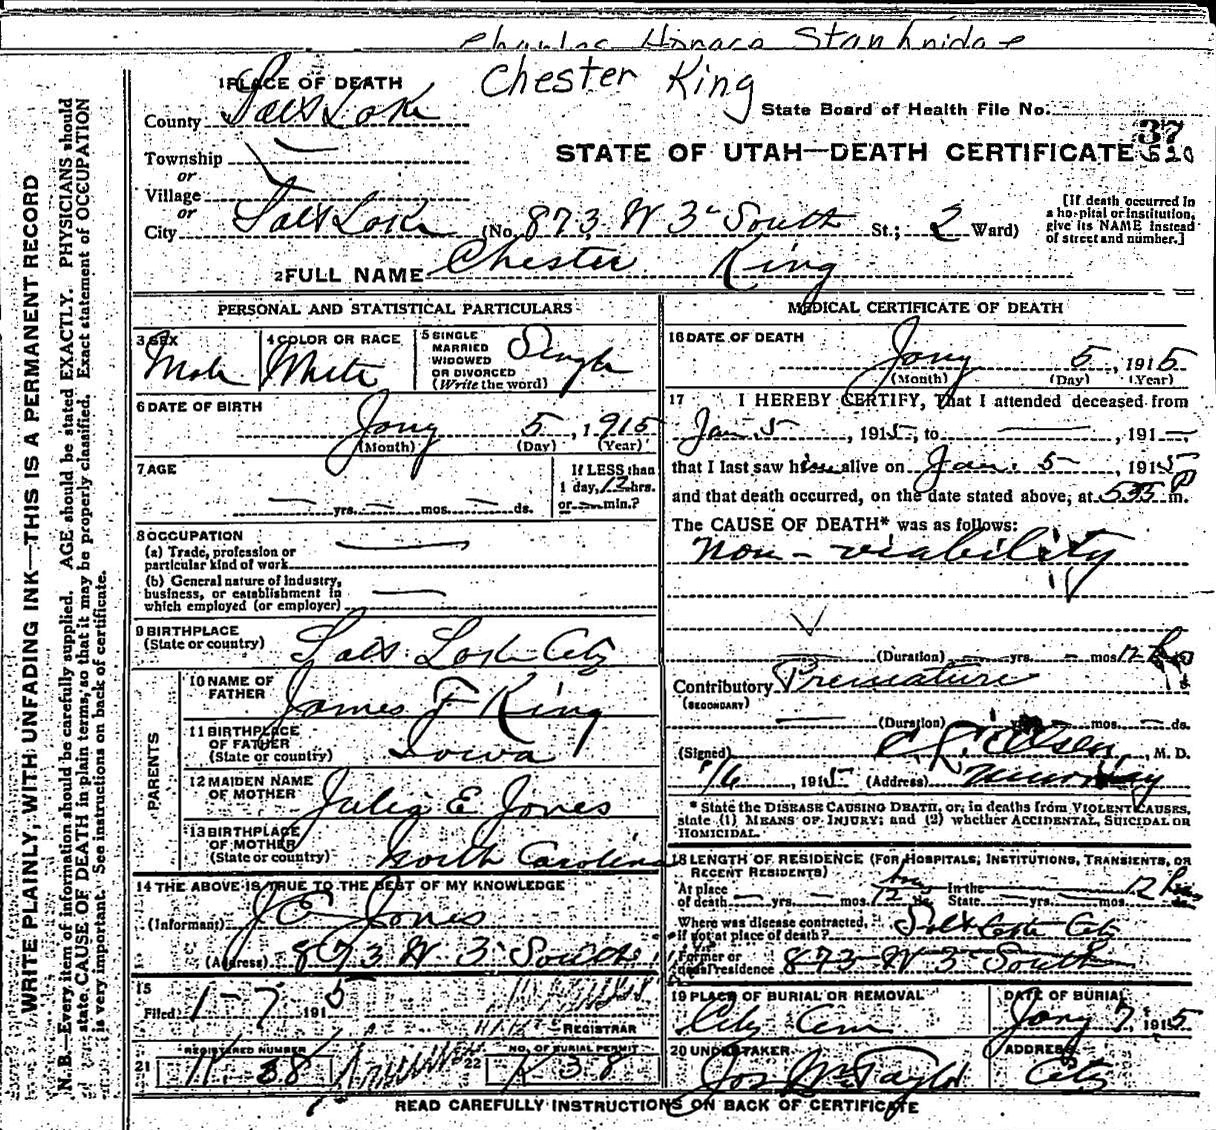 Charles Horace Stanbridge
Chester King
1 PLACE OF DEATH
State Board of Health File No.
County Salt Lake
37
STATE OF UTAH—DEATH CERTIFICATE
Township
or
Village
or
City Salt Lake (No. 873 W 3d South St.; 2 Ward)
[If death occurred in
a hospital or institution,
give its NAME instead
of street and number.]
2 FULL NAME Chester King
WRITE PLAINLY, WITH UNFADING INK—THIS IS A PERMANENT RECORD
N.B.—Every item of information should be carefully supplied. AGE should be stated EXACTLY. PHYSICIANS should
state CAUSE OF DEATH in plain terms, so that it may be properly classified. Exact statement of OCCUPATION
is very important. See instructions on back of certificate.
PERSONAL AND STATISTICAL PARTICULARS
3 SEX
Male
4 COLOR OR RACE
White
5 SINGLE
MARRIED
WIDOWED
OR DIVORCED
(Write the word)
Single
6 DATE OF BIRTH
Jany 5, 1915
(Month) (Day) (Year)
7 AGE
— yrs. — mos. — ds.
If LESS than
1 day, 12 hrs.
or — min.?
8 OCCUPATION
(a) Trade, profession or
particular kind of work
(b) General nature of industry,
business, or establishment in
which employed (or employer)
9 BIRTHPLACE
(State or country) Salt Lake City
PARENTS
10 NAME OF
FATHER James F King
11 BIRTHPLACE
OF FATHER
(State or country) Iowa
12 MAIDEN NAME
OF MOTHER Julia E Jones
13 BIRTHPLACE
OF MOTHER
(State or country) North Carolina
14 THE ABOVE IS TRUE TO THE BEST OF MY KNOWLEDGE
(Informant) J E Jones
(Address) 873 W 3 South
15
Filed 1-7 1915
REGISTRAR
21 REGISTERED NUMBER
22 NO. OF BURIAL PERMIT
K 38
MEDICAL CERTIFICATE OF DEATH
16 DATE OF DEATH
Jany 5, 1915
(Month) (Day) (Year)
17 I HEREBY CERTIFY, That I attended deceased from
Jan. 5, 1915, to —, 191—,
that I last saw him alive on Jan. 5, 1915
and that death occurred, on the date stated above, at 535 P m.
The CAUSE OF DEATH* was as follows:
non-viability
(Duration) — yrs. — mos. 12 hrs
Contributory Premature
(SECONDARY)
(Duration) mos. — ds.
(Signed) Olsen, M. D.
1/6, 1915 (Address) Murray
* State the DISEASE CAUSING DEATH, or, in deaths from VIOLENT CAUSES,
state (1) MEANS OF INJURY; and (2) whether ACCIDENTAL, SUICIDAL OR
HOMICIDAL.
18 LENGTH OF RESIDENCE (FOR HOSPITALS, INSTITUTIONS, TRANSIENTS, OR
RECENT RESIDENTS)
At place
of death — yrs. — mos. 12 hrs In the
State — yrs. — mos. 12 hrs
Where was disease contracted,
if not at place of death? Salt Lake City
Former or
usual residence 873 W 3 South
19 PLACE OF BURIAL OR REMOVAL
City Cem
DATE OF BURIAL
Jany 7, 1915
20 UNDERTAKER
Jos Wm Taylor
ADDRESS
City
READ CAREFULLY INSTRUCTIONS ON BACK OF CERTIFICATE